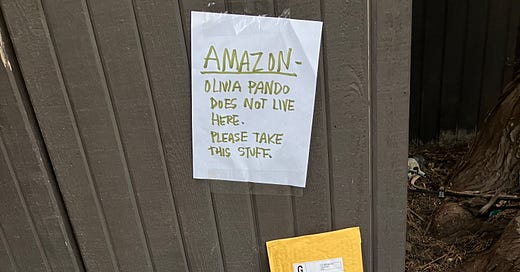 AMAZON-
OLIVIA PANDO
DOES NOT LIVE
HERE.
PLEASE TAKE
THIS STUFF.
G